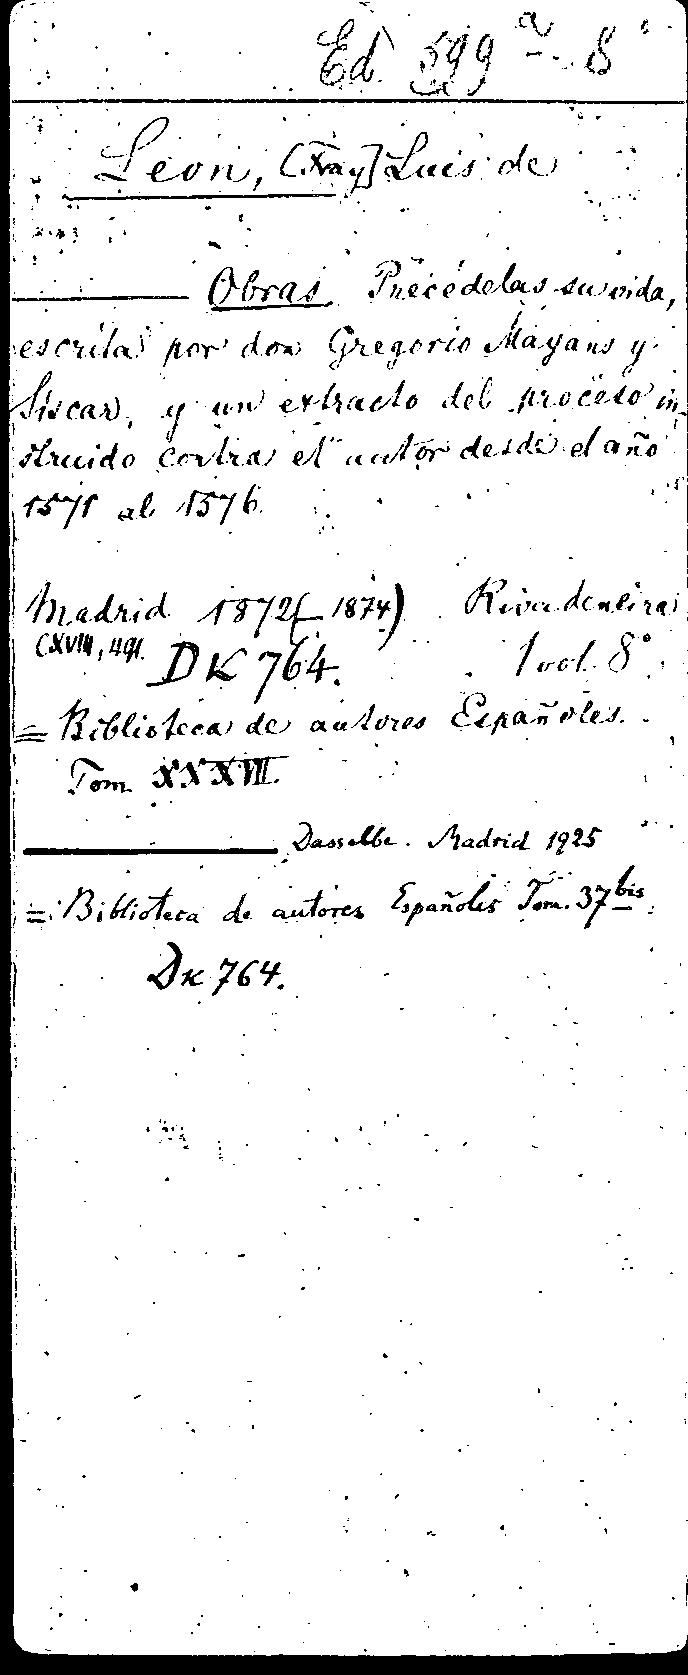 Ed. 599 a - 8°
Leon, [Fray] Luis de
Obras Precédelas su vida,
escrita por don Gregorio Mayans y
Siscar, y un extracto del proceso in-
struido contra el autor desde el año
1571 al 1576.
Madrid 1872 (- 1874) Rivadeneira
CXVIII, 491. DK 764. 1 vol. 8°.
= Biblioteca de autores Españoles.
Tom. XXXVII.
Dasselbe. Madrid 1925
= Biblioteca de autores Españoles Tom. 37bis.
DK 764.